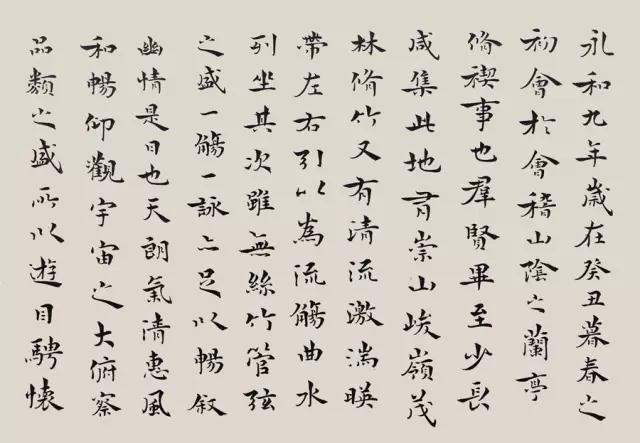 永和九年歲在癸丑暮春之
初會於會稽山陰之蘭亭
脩禊事也羣賢畢至少長
咸集此地有崇山峻嶺茂
林脩竹又有清流激湍暎
帶左右引以為流觴曲水
列坐其次雖無絲竹管弦
之盛一觴一詠亦足以暢叙
幽情是日也天朗氣清惠風
和暢仰觀宇宙之大俯察
品類之盛所以遊目騁懷